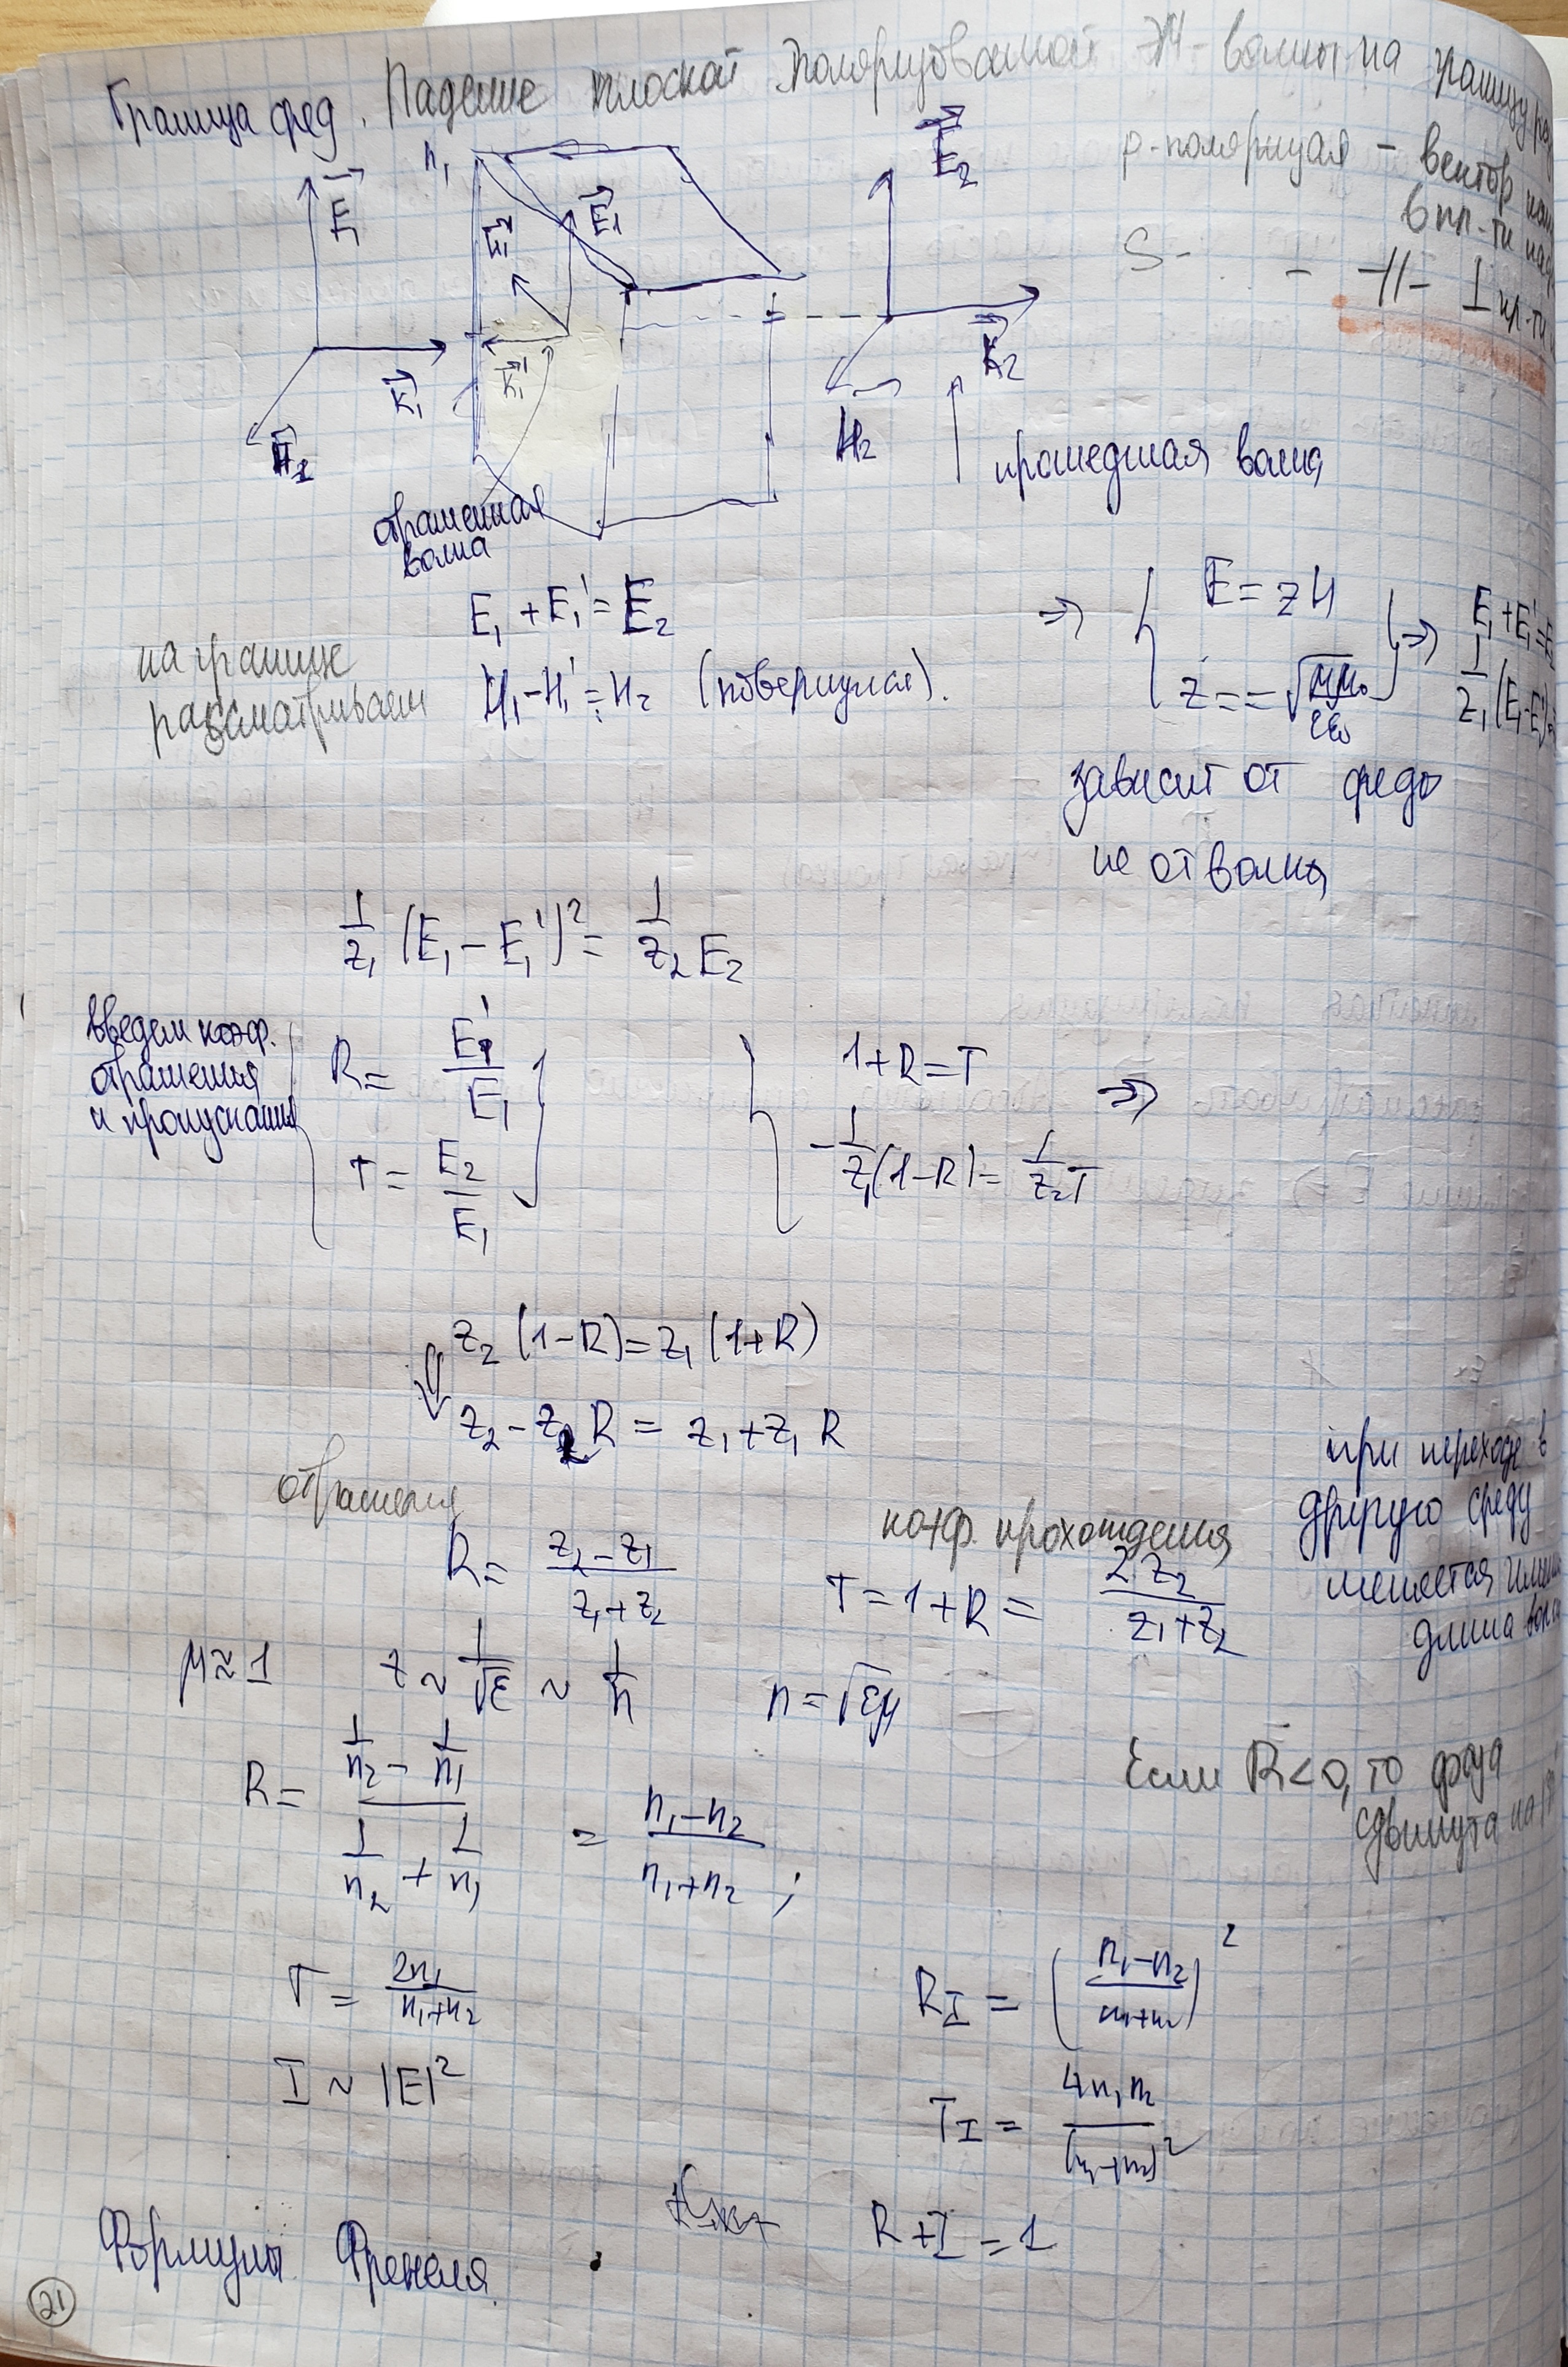 Граница сред. Падение плоской поляризованной ЭМ-волны на границу
p-поляризуая – вектор
в пл-ти
S- - -//- ⊥ пл-ти
n₁
E₁
E₁'
E₁
E₂
K₁
K₁'
K₂
H₁
H₂
прошедшая волна
отраженная
волна
на границе
рассматриваем
E₁ + E₁' = E₂
H₁ - H₁' = H₂ (повернулся).
⇒ { E = zH
z = = √(μμ₀/εε₀) } ⇒
E₁ + E₁' = E
1/z₁ (E₁ - E₁')
зависит от среды
не от волны
1/z₁ (E₁ - E₁')² = 1/z₂ E₂
введем коэф.
отражения
и пропускания
R = E₁'/E₁
T = E₂/E₁
1 + R = T ⇒
-1/z₁ (1-R) = 1/z₂ T
z₂ (1-R) = z₁ (1+R)
⇓
z₂ - z₂ R = z₁ + z₁ R
отражения
R = (z₂ - z₁)/(z₁ + z₂)
коэф. прохождения
T = 1 + R = 2z₂/(z₁ + z₂)
при переходе в
другую среду
меняется
длина
μ ≈ 1 z ~ 1/√ε ~ 1/n n = √εμ
R = (1/n₂ - 1/n₁)/(1/n₂ + 1/n₁) = (n₁ - n₂)/(n₁ + n₂) ;
Если R<0, то фаза
сдвинута на
T = 2n₁/(n₁+n₂)
R_I = ((n₁ - n₂)/(n₁+n₂))²
I ~ |E|²
T_I = 4n₁n₂/(n₁+n₂)²
R + I = 1
Формулы Френеля.
21